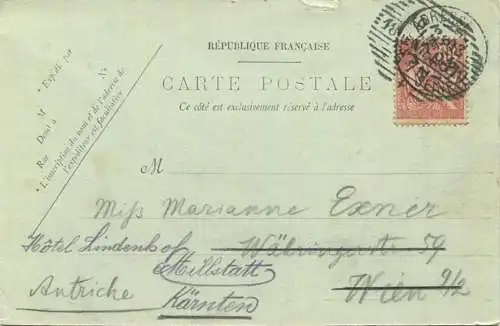 RÉPUBLIQUE FRANÇAISE
CARTE POSTALE
Ce côté est exclusivement réservé à l'adresse
* Expédié par
M
N°
Demt à
Rue
* L'inscription du nom et de l'adresse de
l'expéditeur est facultative
M
Miss Marianne Exner
Hôtel Lindenhof
Währingerstr 59
Millstatt
Autriche
Kärnten
Wien 9/2